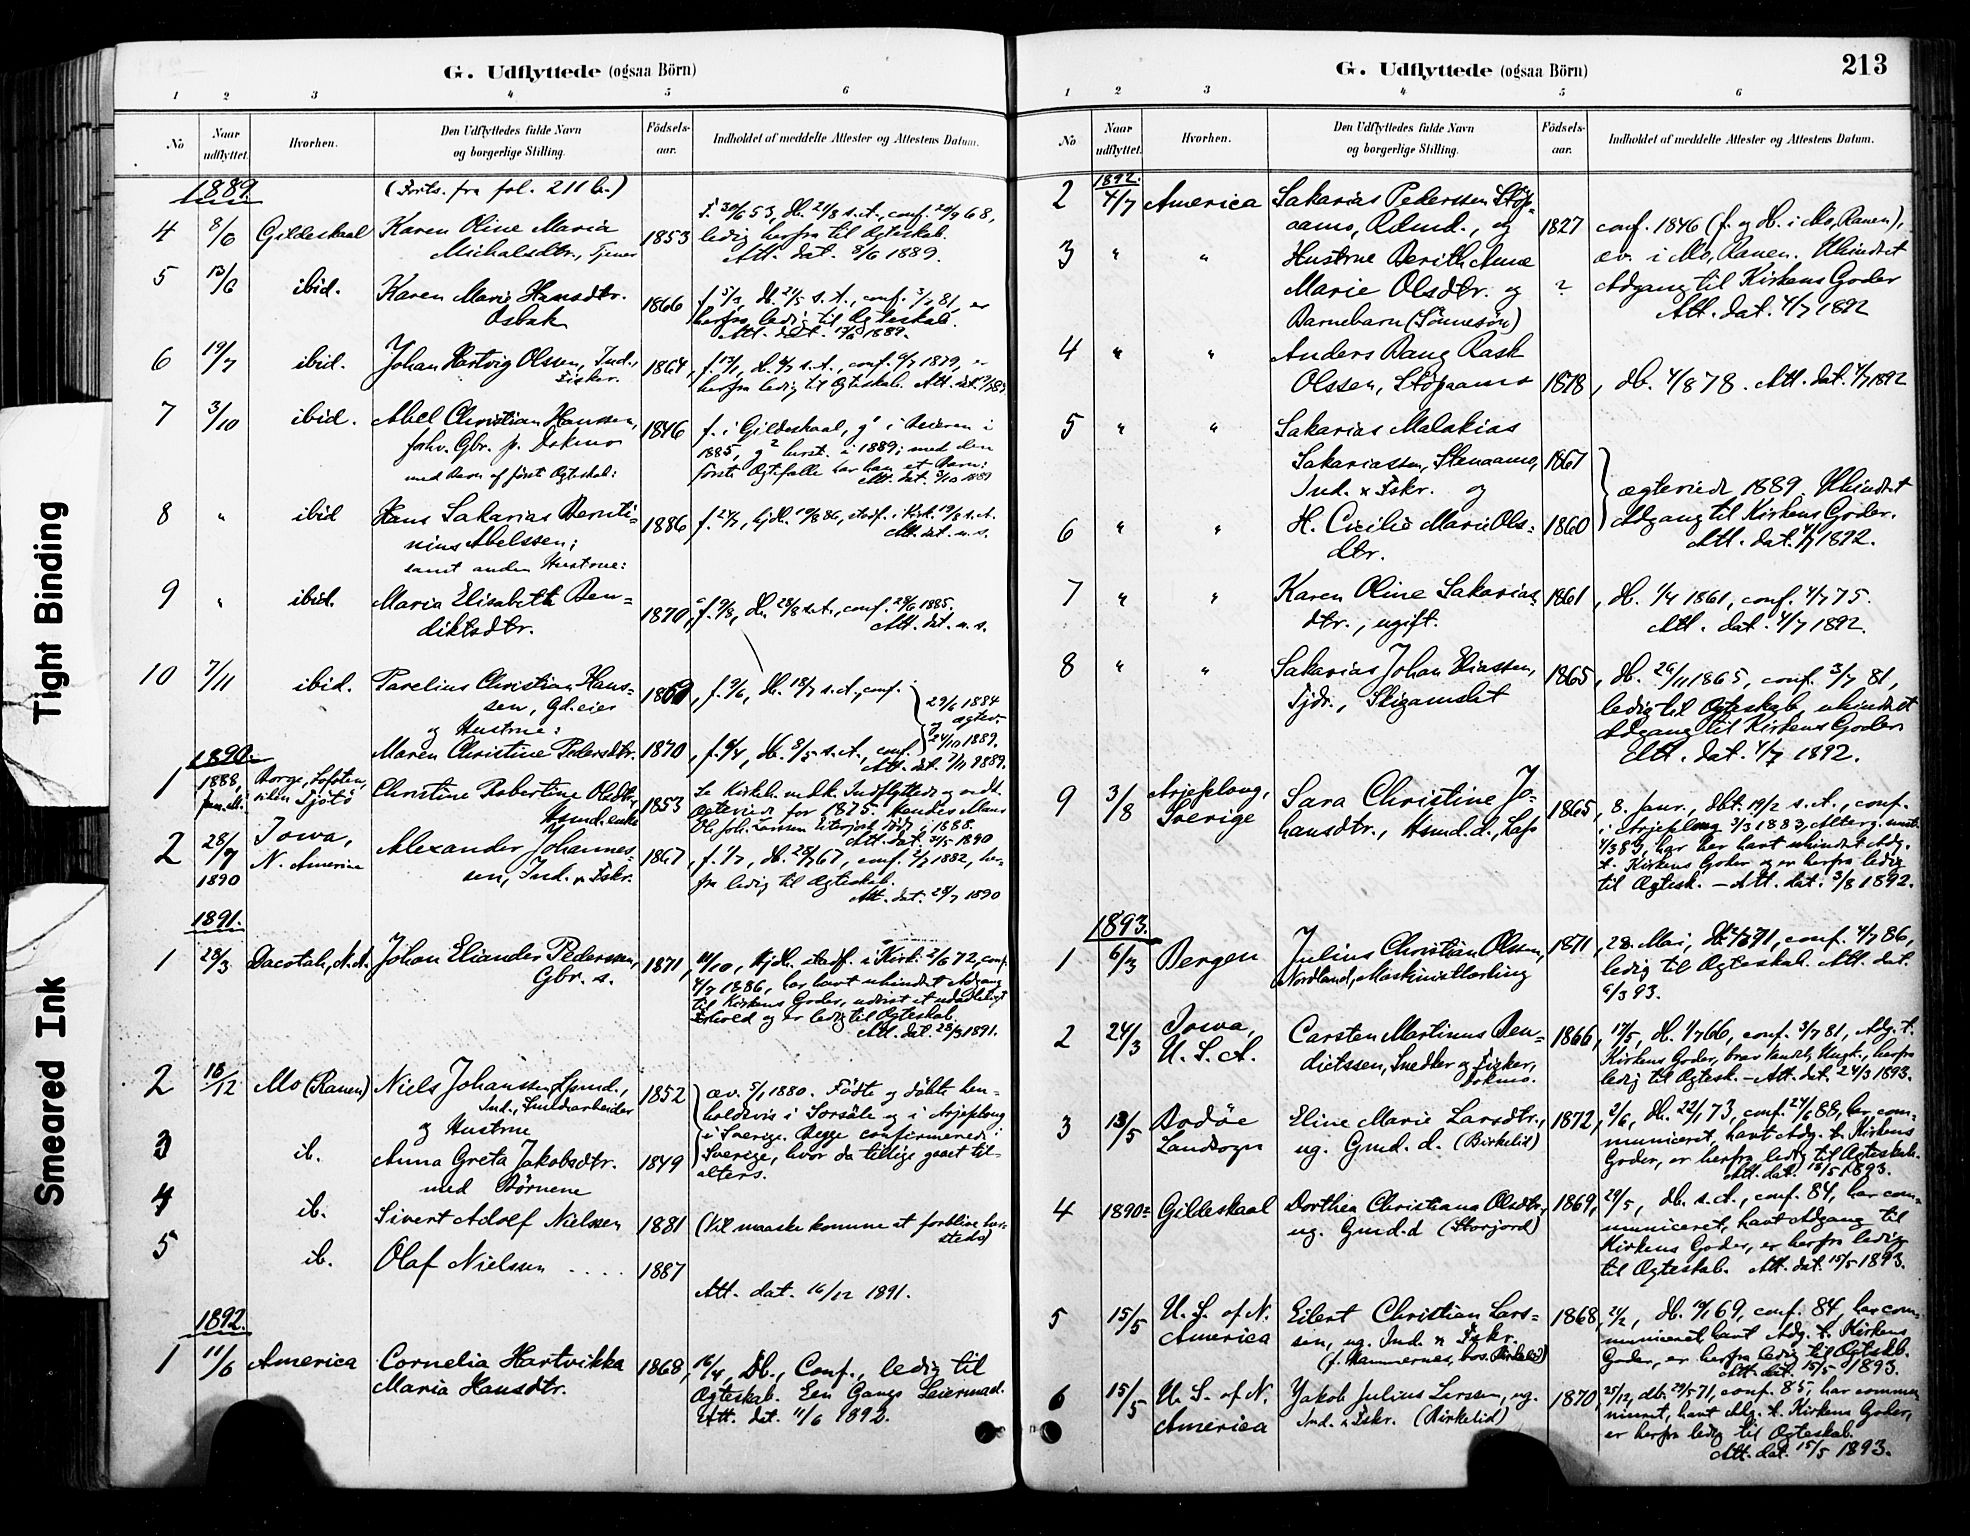 Tight Binding
Smeared Ink
G. Udflyttede (ogsaa Börn)
1 2 3 4 5 6
No
Naar udflyttet.
Hvorhen.
Den Udflyttedes fulde Navn og borgerlige Stilling.
Födsels-aar.
Indholdet af meddelte Attester og Attestens Datum.
1889. (Forts. fra fol. 211 b.)
4 8/6 Gildeskaal Karen Oline Maria 1853 f. 30/6 53, db. 21/8 s. A., conf. 20/9 68,
Michalsdtr., Tjener ledig herfra til Ægteskab.
Att. dat. 8/6 1889.
5 13/6 ibid. Karen Marie Hansdtr. 1866 conf. 3/7 81, er
Osbak herfra ledig til Ægteskab.
Att. dat. 13/6 1889.
6 19/7 ibid. Johan Hartvig Olsen, Ind., 1864, conf. 6/7 1879, er
Fisker. herfra ledig til Ægteskab. Att. dat.
7 3/10 ibid. Abel Christian Hanssen, 1846 f. i Gildeskaal, g1 i Beieren i
forhv. Gbr. p. Dokmo 1885, g2 i 1889; med den
med Barn af første Ægteskab: første Ægtefælle har han et Barn:
Att. dat. 3/10 1889
8 " ibid Hans Sakarias Bernti- 1886 f. 24/7, hjdb. 19/8 86, stadf. i Kirk. 19/8 s. A.
nius Abelssen; Att. dat. u. s.
samt anden Hustrue:
9 " ibid. Maria Elisabeth Ben- 1870, f. 9/8, db. 28/8 s. A., conf. 28/6 1885.
diktsdtr. Att. dat. u. s.
10 7/11 ibid. Parelius Christian Hans- 1869, f. 9/6, db. 18/7 s. A., conf.
sen, Gd.eier 29/6 1884
og Hustrue: og ægtev.
24/10 1889.
Maren Christine Pedersdtr. 1870, f. 9/4, db. 8/5 s. A., conf.
Att. dat. 7/11 1889.
1890.
1 1888, Borge, Lofoten, Christine Robertine Olsdtr., 1853 Se Kirkeb. Indflyttede
siden Gjøtø Husmd.enke ægteviede for 1875. Hendes Mand
Ole Joh. Larssen Storjord døde i 1888.
Att. dat. 21/5 1890
2 28/7 1890 Iowa, Alexander Johannes- 1867, f. 1/7, db. 28/7 67, conf. 2/7 1882, her-
N. Amerika sen, Ind. & Fskr. fra ledig til Ægteskab.
Att. dat. 28/7 1890
1891.
1 28/3 Dacotah, N. A. Johan Eliander Pederssen, 1871, 10/10, hjdb. stadf. i Kirk. 2/6 72, conf.
Gbr. s. 4/7 1886, har havt uhindret Adgang
til Kirkens Goder, udvist et udadleligt
Forhold og er ledig til Ægteskab.
Att. dat. 28/3 1891.
2 18/12 Mo (Ranen) Niels Johanssen Husmd., 1852 æv. 5/1 1880. Fødte og døbte hen-
Ind., Smedarbeider holdsvis i Sorsele og i Arjeploug
og Hustrue i Sverige. Begge confirmerede i
3 ib. Anna Greta Jakobsdtr. 1849 Sverige, hvor da tillige gaaet til-
med Børnene alters.
4 ib. Sivert Adolf Nielssen 1881 (Vil maaske komme at forblive her-
steds)
5 ib. Olaf Nielssen .... 1887
Att. dat. 16/12 1891.
1892.
1 11/6 America Cornelia Hartvikka 1868, 16/4, Db., Conf., ledig til
Maria Hansdtr. Ægteskab. Een Gangs Leiermaal.
Att. dat. 11/6 1892.
G. Udflyttede (ogsaa Börn) 213
1 2 3 4 5 6
No
Naar udflyttet.
Hvorhen.
Den Udflyttedes fulde Navn og borgerlige Stilling.
Födsels-aar.
Indholdet af meddelte Attester og Attestens Datum.
1892.
2 4/7 America Sakarias Pederssen Støp-
aamo, Rdmd., og 1827 conf. 1846 (f. og db. i Mo, Ranen),
3 " " Hustrue Berith Anne æv. i Mo, Ranen. Uhindret
Marie Olsdtr. og ? Adgang til Kirkens Goder
Barnebarn (Sønnesøn) Att. dat. 4/7 1892
4 " " Anders Bang Rask
Olssen, Støpaamo 1878, db. 4/8 78. Att. dat. 4/7 1892
5 " " Sakarias Malakias
Sakariassen, Stenaamo, 1867
Ind. & Fskr. og ægteviede 1889 Uhindret
6 " " H. Cecilie Marie Ols- 1860 Adgang til Kirkens Goder.
dtr. Att. dat. 4/7 1892.
7 " " Karen Oline Sakarias- 1861, db. 1/4 1861, conf. 4/7 75.
dtr., ugift. Att. dat. 4/7 1892.
8 " " Sakarias Johan Eliassen, 1865, db. 26/11 1865, conf. 3/7 81,
Tjdr., Stigamslet ledig til Ægteskab, uhindret
Adgang til Kirkens Goder
Att. dat. 4/7 1892.
9 3/8 Arjeploug, Sara Christine Jo- 1865, 8. Janr., dbt. 19/2 s. A., conf.
Sverige hansdtr., Husmd. d., i Arjeploug 3/3 1883,
har her havt uhindret Adg.
t. Kirkens Goder og er herfra ledig
til Ægtesk. – Att. dat. 3/8 1892.
1893.
1 6/3 Bergen Julius Christian Olssen, 1871, 28. Mai, conf. 4/7 86,
Nordland, Maskinistlærling ledig til Ægteskab. Att. dat.
6/3 93.
2 24/3 Iowa, Carsten Martinus Ben- 1866, 17/5, db. 1/7 66, conf. 3/7 81, Adg. t.
U. S. A. dictssen, Snedker og Fisker, Kirkens Goder, herfra
Dokmo. ledig til Ægtesk. – Att. dat. 24/3 1893.
3 13/5 Bodøe Eline Marie Larsdtr., 1872, 2/6, db. 22/1 73, conf. 24/6 88, har com-
Landsogn ug. Gmd. d. (Birkelid) municeret, havt Adg. t. Kirkens
Goder, er herfra ledig til Ægteskab.
Att. dat. 13/5 1893.
4 1890 Gildeskaal Dorthea Christiana Olsdtr., 1869, 29/5, db. s. A., conf. 84, har com-
ug. Gmd. d (Storjord) municeret, havt Adgang til
Kirkens Goder, er herfra ledig
til Ægteskab. Att. dat. 15/5 1893.
5 15/5 U. S. of N. Eilert Christian Lars- 1868, 24/2, conf. 84, har com-
America sen, ug. Ind. & Fskr. municeret, havt Adg. t. Kirkens
(f. Hammernes, bos. Birkelid) Goder, er herfra ledig til Ægtskb.
Att. dat. 15/5 1893.
6 15/5 U. S. of N. Jakob Julius Larssen, ug. 1870, 25/12, db. 29/5 71, conf. 85, har commu-
America Ind. & Fskr. (Birkelid) niceret, havt Adg. t. Kirkens Goder,
er herfra ledig til Ægteskab.
Att. dat. 15/5 1893.